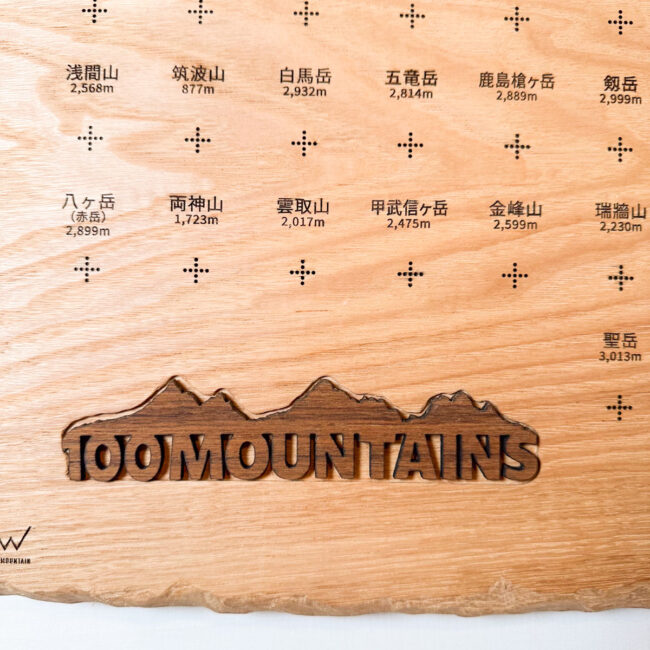 浅間山 筑波山 白馬岳 五竜岳 鹿島槍ヶ岳 剱岳
2,568m 877m 2,932m 2,814m 2,889m 2,999m
八ヶ岳 両神山 雲取山 甲武信ヶ岳 金峰山 瑞牆山
(赤岳) 1,723m 2,017m 2,475m 2,599m 2,230m
2,899m
聖岳
3,013m
100MOUNTAINS
W
MOUNTAIN